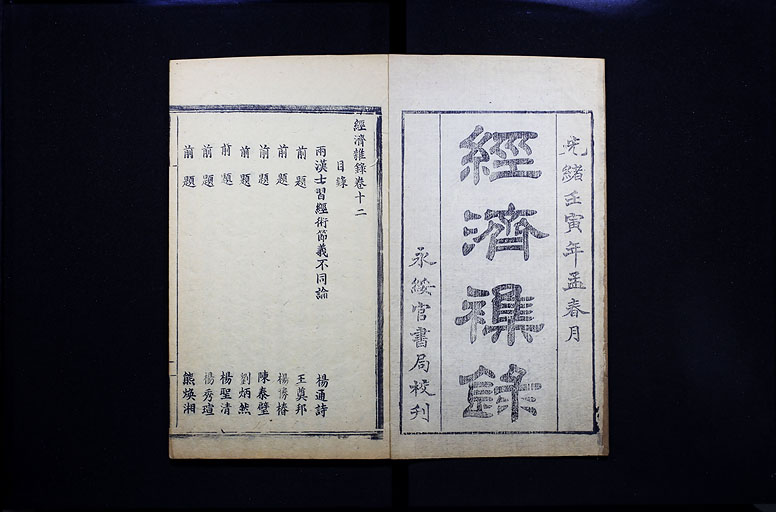 光緒壬寅年孟春月
經濟襍錄
永綏官書局校刊
經濟雜錄卷十二
目錄
兩漢士習經術節義不同論 楊通詩
前題 王奠邦
前題 楊勝椿
前題 陳泰璧
前題 劉炳焄
前題 楊聖清
前題 楊秀瑄
前題 熊煥湘